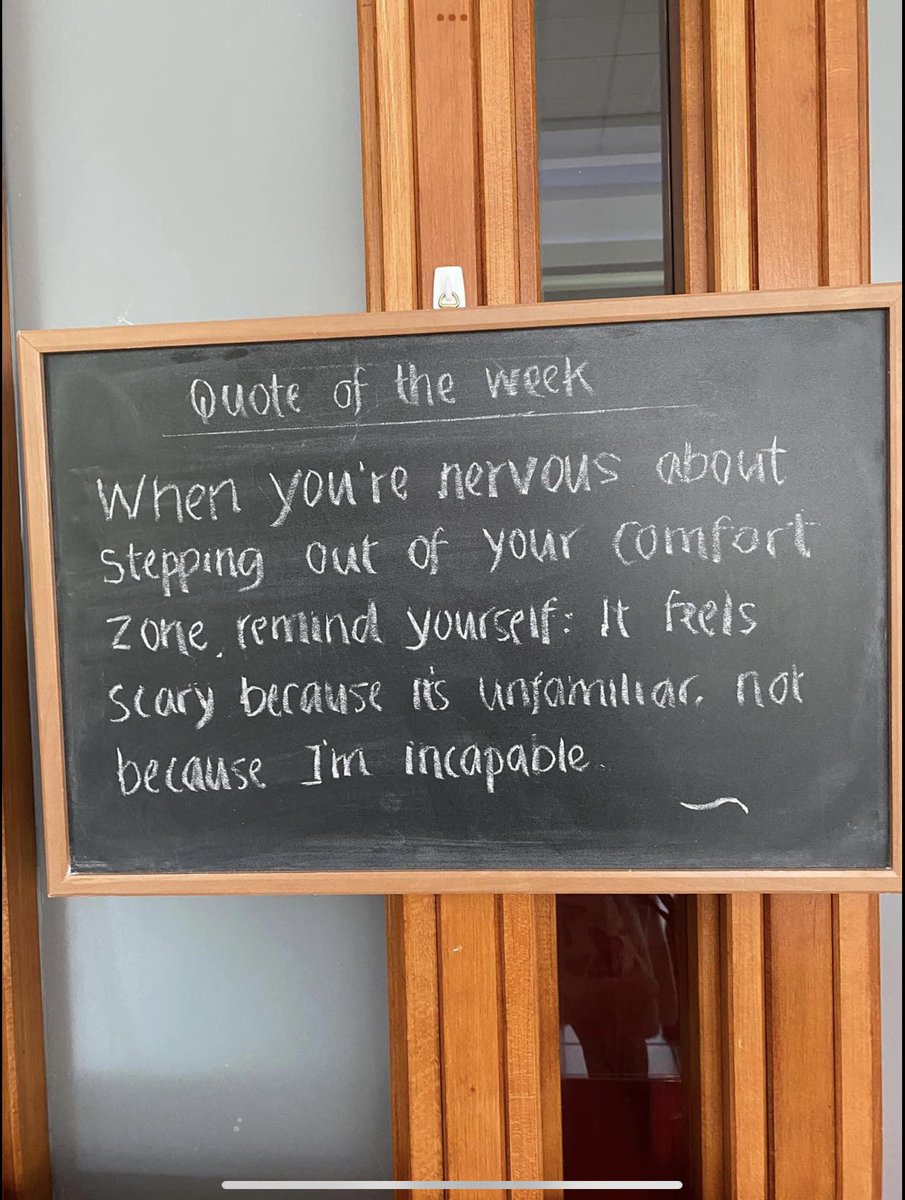 Quote of the week
When you're nervous about
stepping out of your comfort
zone, remind yourself: It feels
scary because it's unfamiliar, not
because I'm incapable.